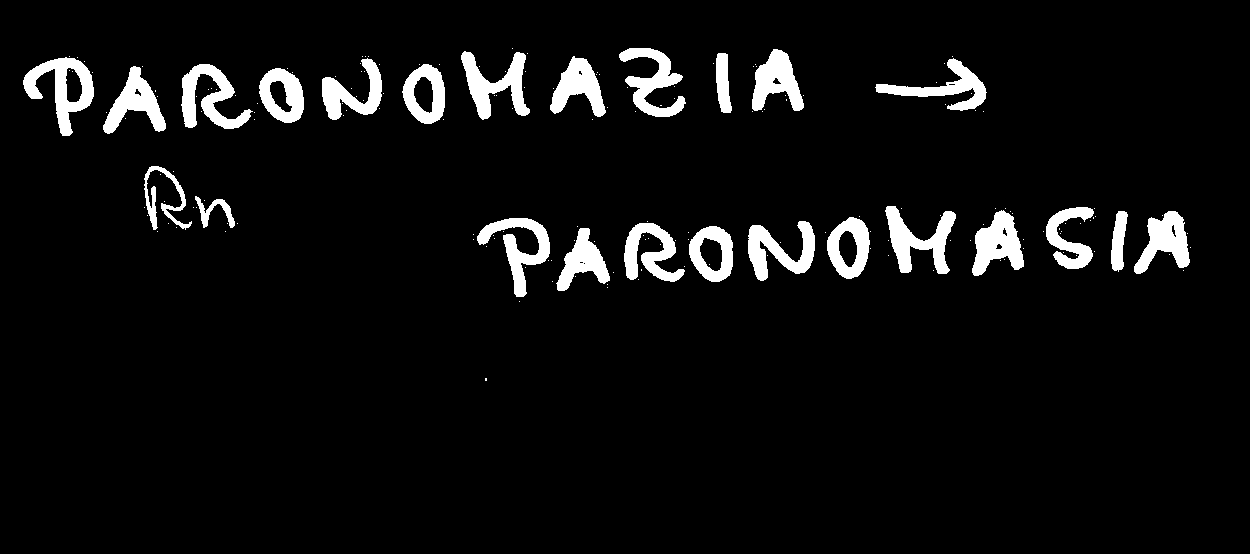 PARONOMAZIA →
Rn
PARONOMASIA